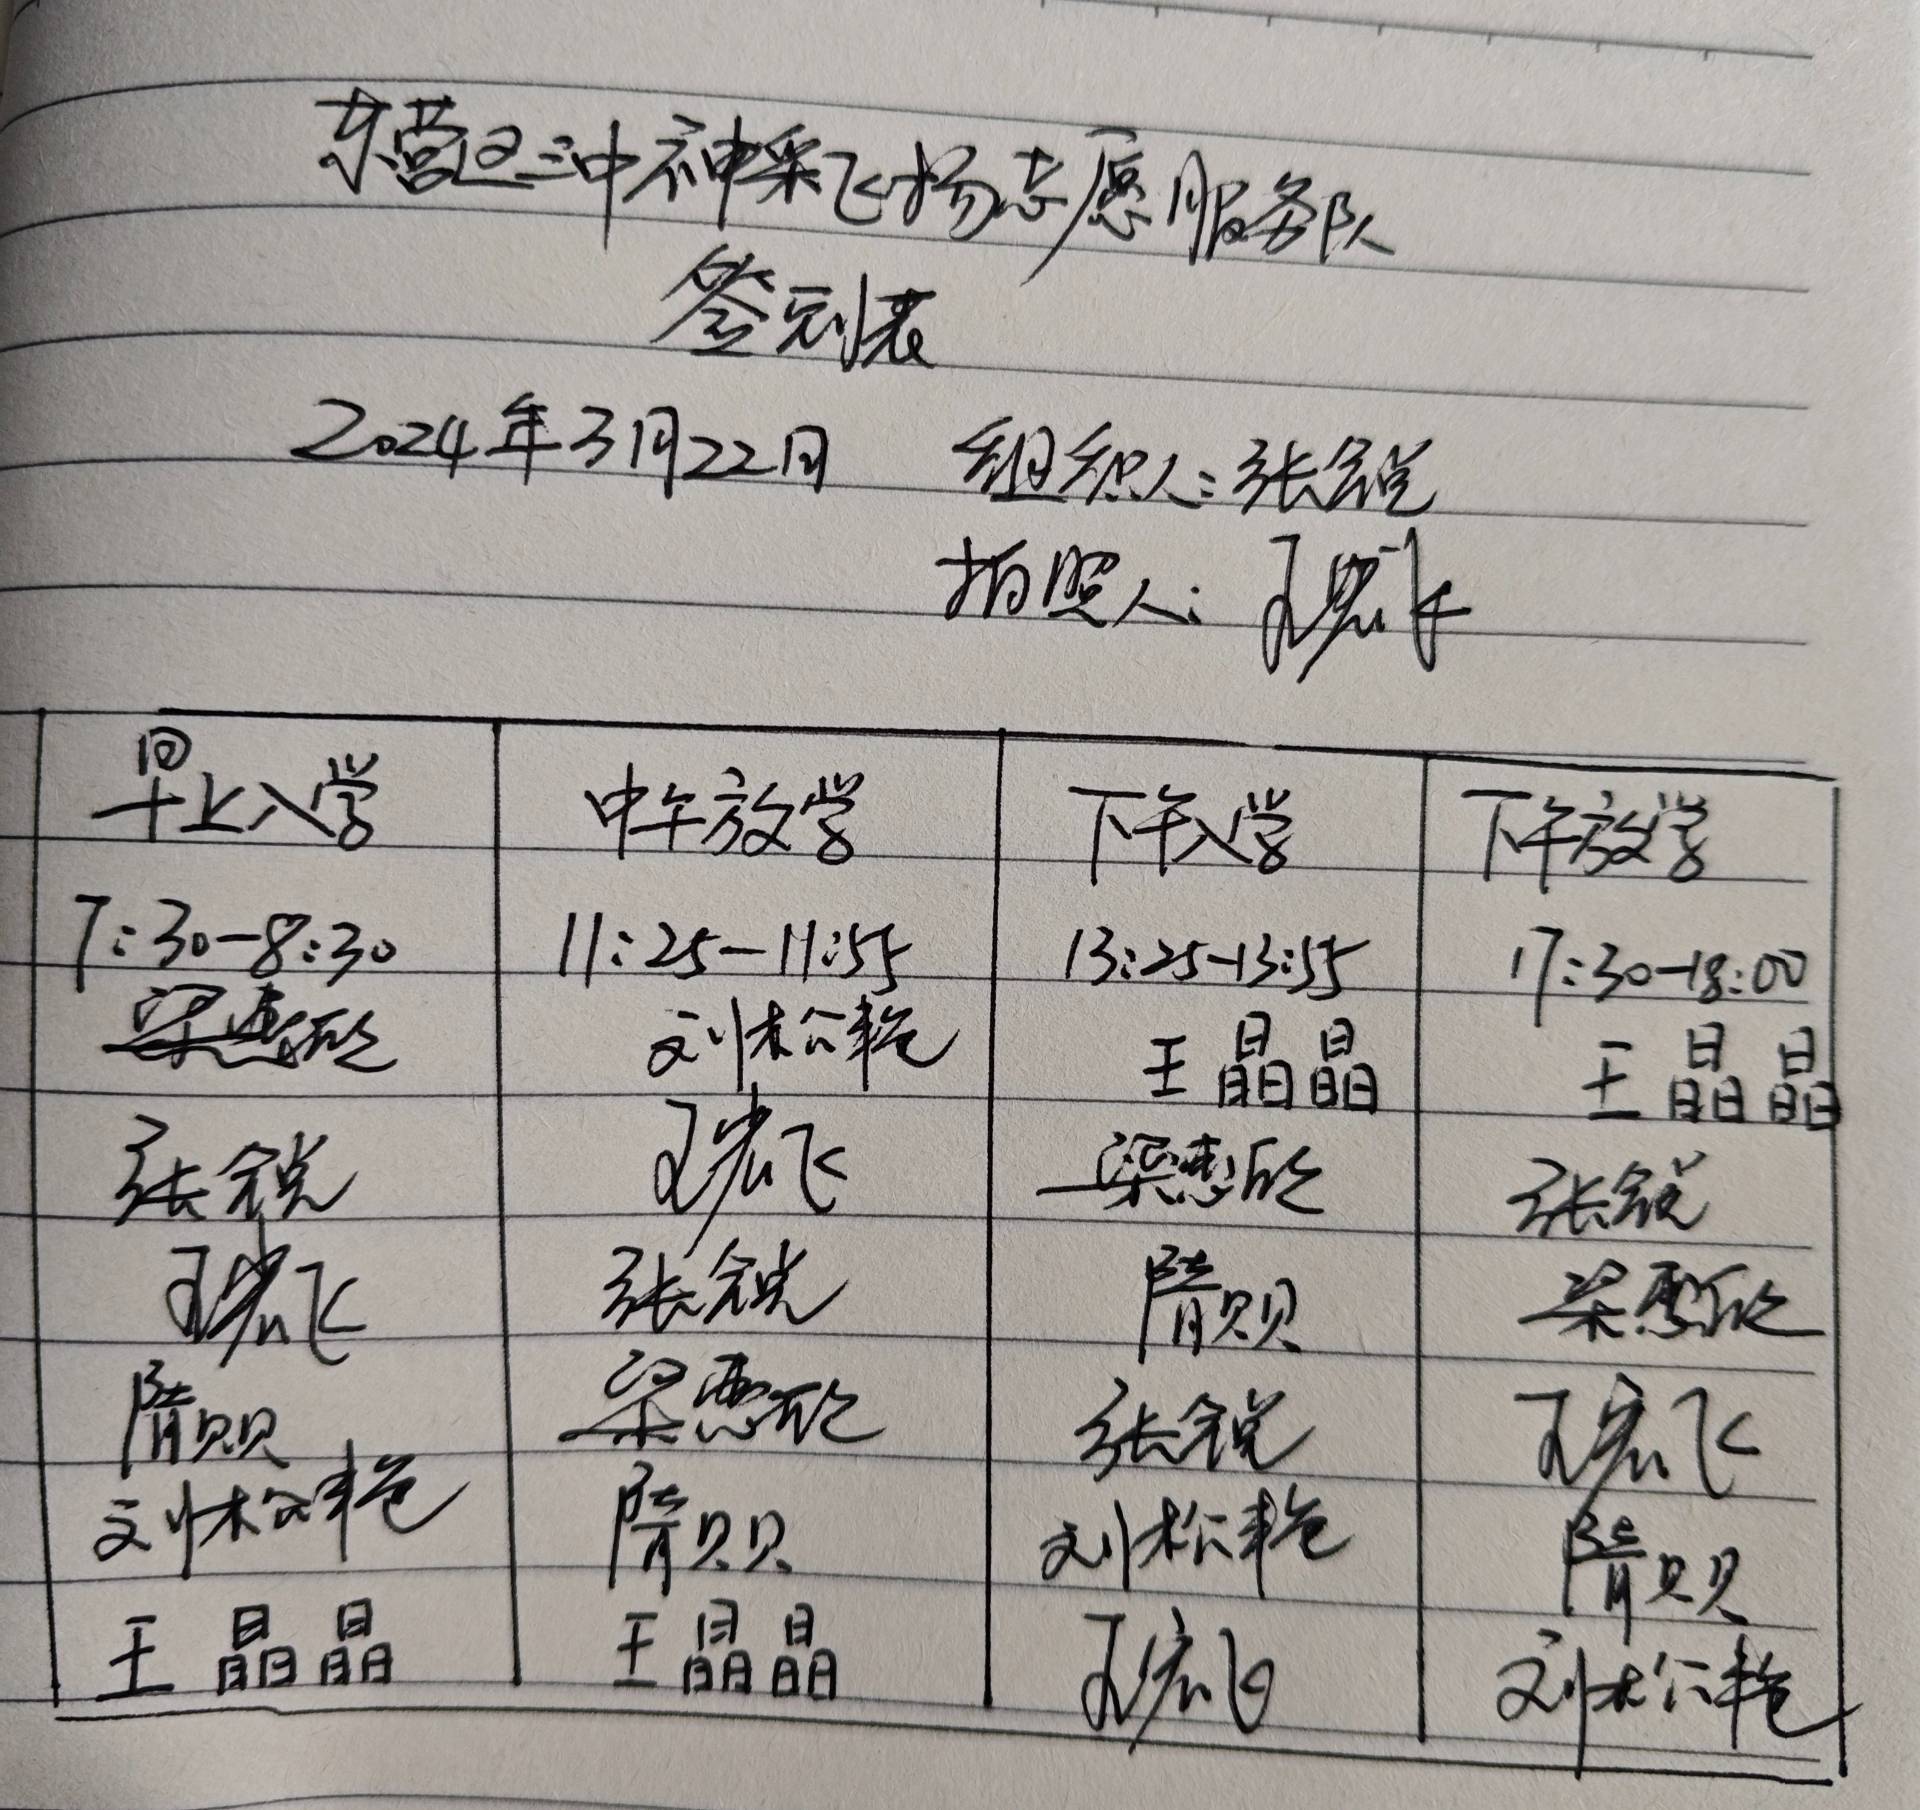 东营区三中神采飞扬志愿服务队
签到表
2024年3月22日 组织人:张锐
拍照人: 王宏飞
早上入学 中午放学 下午入学 下午放学
7:30-8:30 11:25-11:55 13:25-13:55 17:30-18:00
梁惠欣 刘松艳 王晶晶 王晶晶
张锐 王宏飞 梁惠欣 张锐
王宏飞 张锐 隋贝贝 梁惠欣
隋贝贝 梁惠欣 张锐 王宏飞
刘松艳 隋贝贝 刘松艳 隋贝贝
王晶晶 王晶晶 王宏飞 刘松艳